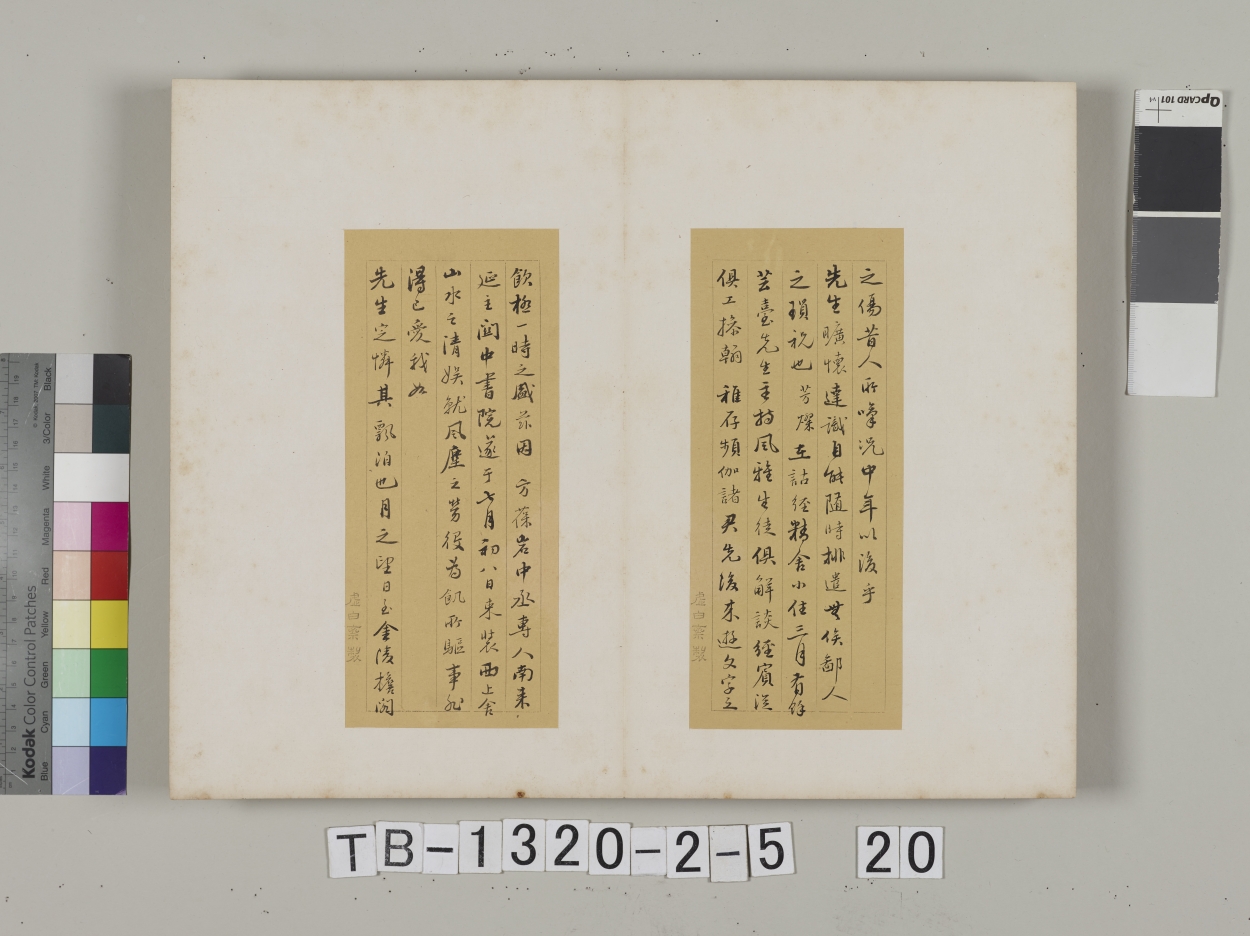 之傷昔人所嘆況中年以後乎
先生曠懷達識自能隨時排遣無俟鄙人
之瑣祝也芳燦在詁經精舍小住三月有餘
芸臺先生主持風雅生徒俱解談經賓從
俱工操翰雅存頻伽諸君先後來遊文字之
飲極一時之盛茲因方葆岩中丞專人南來
延主關中書院遂于七月初八日束裝西上舍
山水之清娛就風塵之勞役為飢所驅事非
得已愛我如
先生定憐其飄泊也月之望日至金陵擔閣
虛白齋製
虛白齋製
Kodak Color Control Patches
© Kodak, 2007 TM: Kodak
Blue
Cyan
Green
Yellow
Red
Magenta
White
3/Color
Black
QPCARD 101
TB-1320-2-5 20